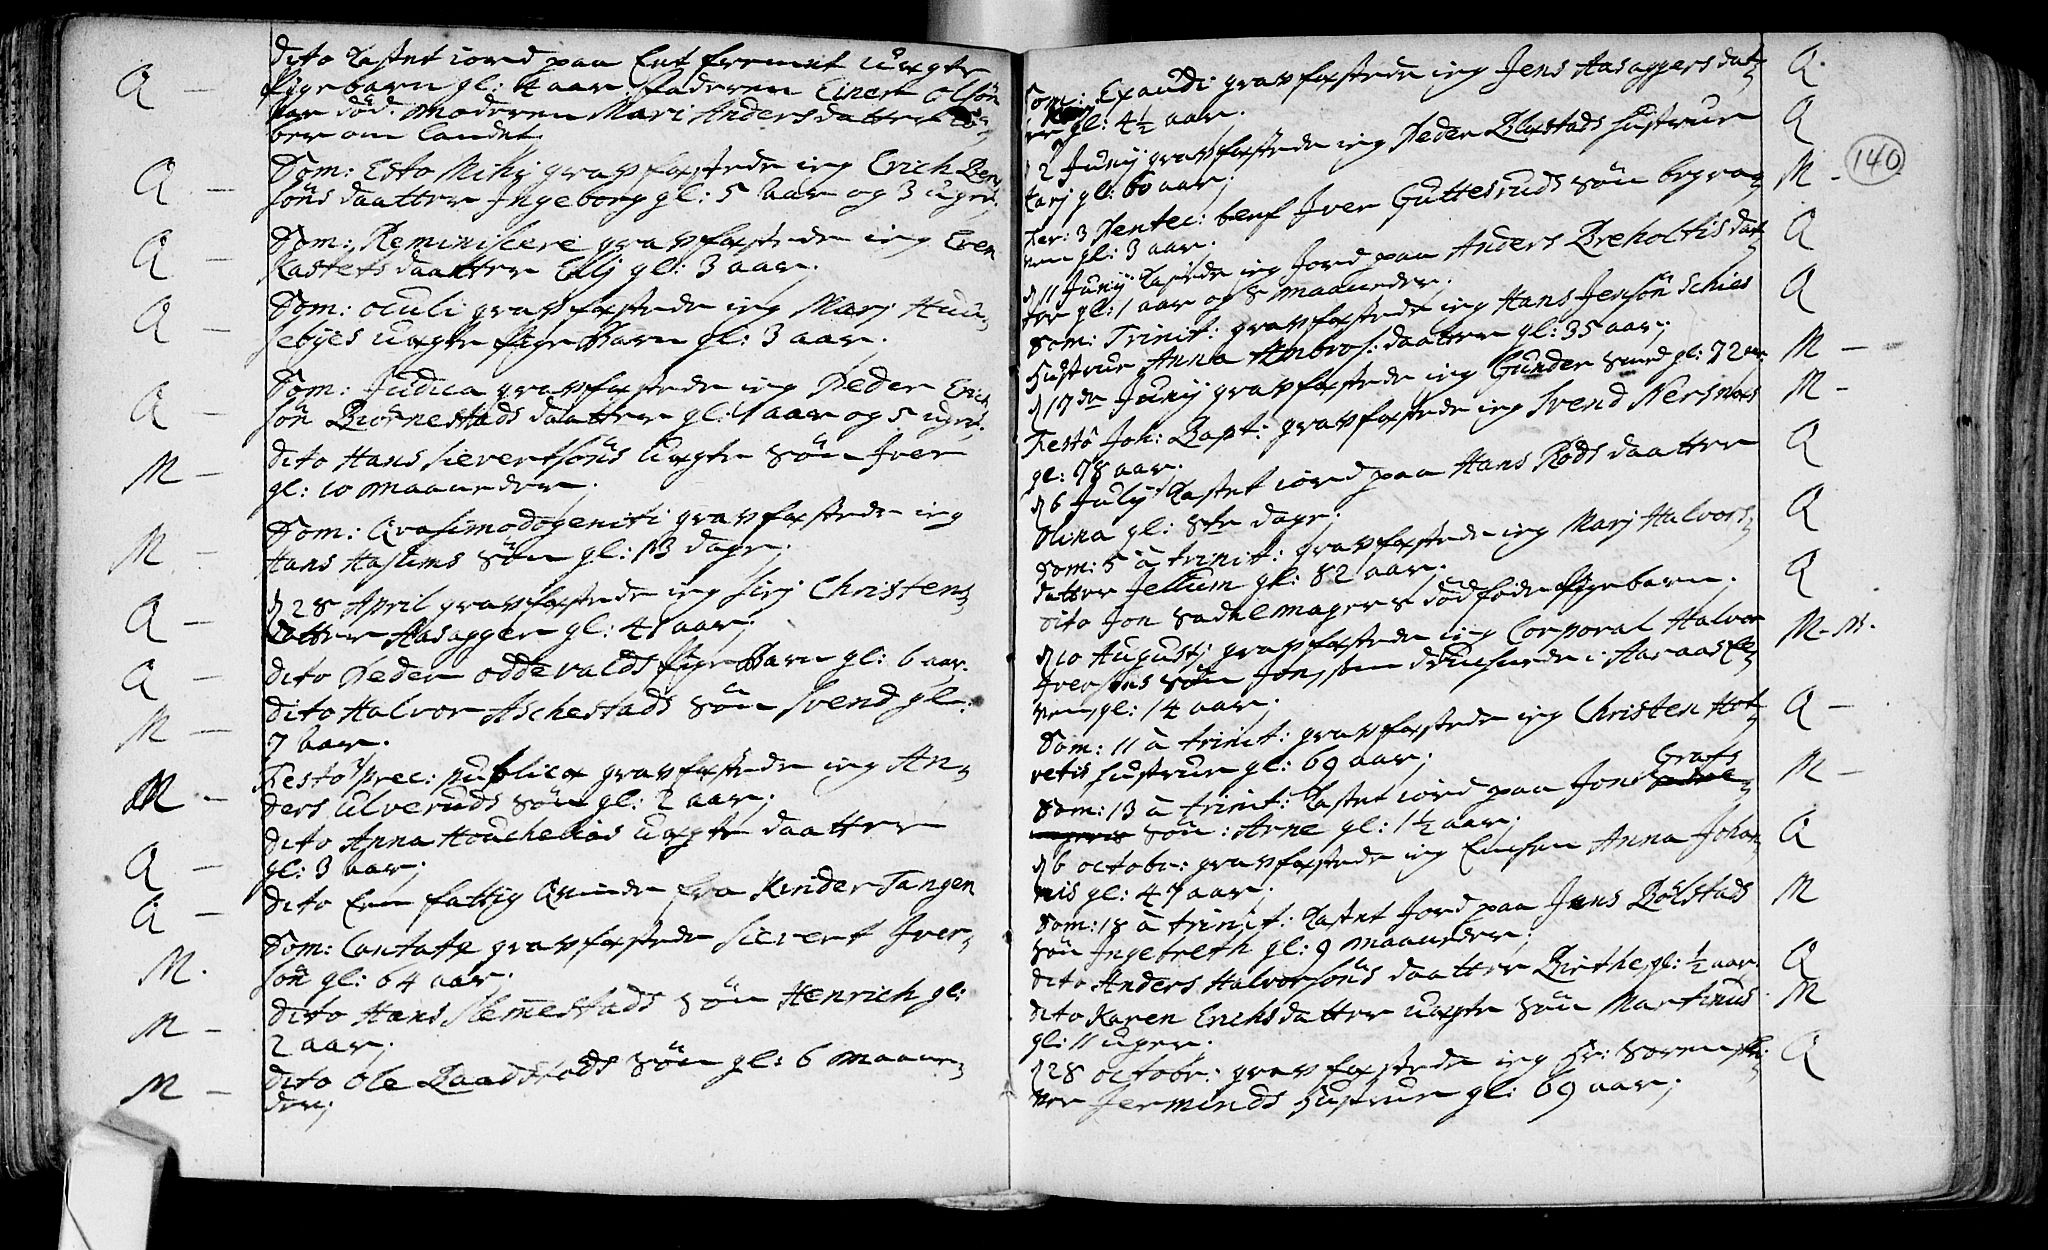 Q — dito kastet iord paa Eet fremit uægte
pigebarn gl: 4 aar. Faderen Einer Olsön
var död. moderen Mari Andersdatter
ber om landet,
Q — Dom: Esto Mihi gravfæstede ieg Erich Ben-
söns daatter Ingeborg gl: 5 aar og 3 uger,
Q — Dom: Reminiscere gravfæstede ieg Even
Kastets daatter Elj gl: 3 aar.
Q — Dom: oculi gravfæstede ieg Marj Huu-
sebyes uægte pige Barn gl: 3 aar.
Q — Dom: Judica gravfæstede ieg Peder Erich
sön Biörnestads daatter gl: 1 aar og 5 uger.
M — dito Hans Sievertsöns Uægte Sön Iver
gl: 10 maaneder.
M — Dom: Qvasimodogeniti gravfæstede ieg
Hans Haslums Sön gl: 13 dage,
Q — d 28 April gravfæstede ieg Sirj Christens-
datter Aasaggen gl: 41 aar,
Q — dito Peder oddevalds pige Barn gl: 6 aar.
M — dito Halvor Aschestads Sön Svend gl:
7 aar.
M — Festo prec: publicæ gravfæstede ieg An-
ders Ulveruds Sön gl: 2 aar,
Q — dito Anna Houchelias uægte daatter
gl: 3 aar;
Q — dito Een fattig Qvinde fra Kinder Tangen
M. Dom: Cantate gravfæstede Sievert Iver-
sön gl: 64 aar.
M — dito Hans Slemestads Sön Henrich gl:
2 aar.
M — dito Ole Baadstads Sön gl: 6 maane-
der;
140
Dom: Exaudi gravfæstede ieg Jens Aasaggers dat- Q.
ter gl: 4½ aar.
d 2 Junij gravfæstede ieg Peder Blixstads Hustrue Q
Karj gl: 60 aar;
Fer: 3 Pentec: blef Iver Guttesruds Sön begra- M —
ven gl: 3 aar.
d 11 Junij kastede ieg Jord paa Anders Breholtis dat- Q
ter gl: 1 aar og 8 maaneder.
Dom: Trinit: gravfæstede ieg Hans Jensön Schies Q
Hustrue Anna Ambros: daatter gl: 35 aar;
d 17de Junij gravfæstede ieg Gunder Smed gl: 72 aar. M —
Festo Joh: Bapt: gravfæstede ieg Svend Nersnæs M —
gl: 78 aar.
d 6 Julij kastet iord paa Hans Röds daatter Q
Olina gl: 8te dage;
Dom: 5 à trinit: gravfæstede ieg Marj Halvors- Q
datter Jellum gl: 82 aar.
dito Jon Sadelmagers dödföde pigebarn. Q
d 10 Augustj gravfæstede ieg Corporal Halvor M. M.
Iversens Sön Jon, som druchnede i Aaraas El-
ven, gl: 14 aar;
Dom: 11 à trinit: gravfæstede ieg Christen Hot- Q —
vetis Hustrue gl: 69 aar;
Grafs
Dom: 13 à trinit: kastet iord paa Jons M —
Sön: Arne gl: 1½ aar.
d 6 octobr: gravfæstede ieg Enchen Anna Johan- Q
nis gl: 47 aar.
Dom: 18 à trinit: kastet Jord paa Jens Bölstads M
Sön Ingebreth gl: 9 maaneder;
dito Anders Halvorsöns daatter Birthe, gl: ½ aar. Q
dito Karen Erichsdatter uægte Sön Martinus M
gl: 11 uger.
d 28 octobr: gravfæstede ieg Hr: Sören Q
Jerminds Hustrue gl: 69 aar;